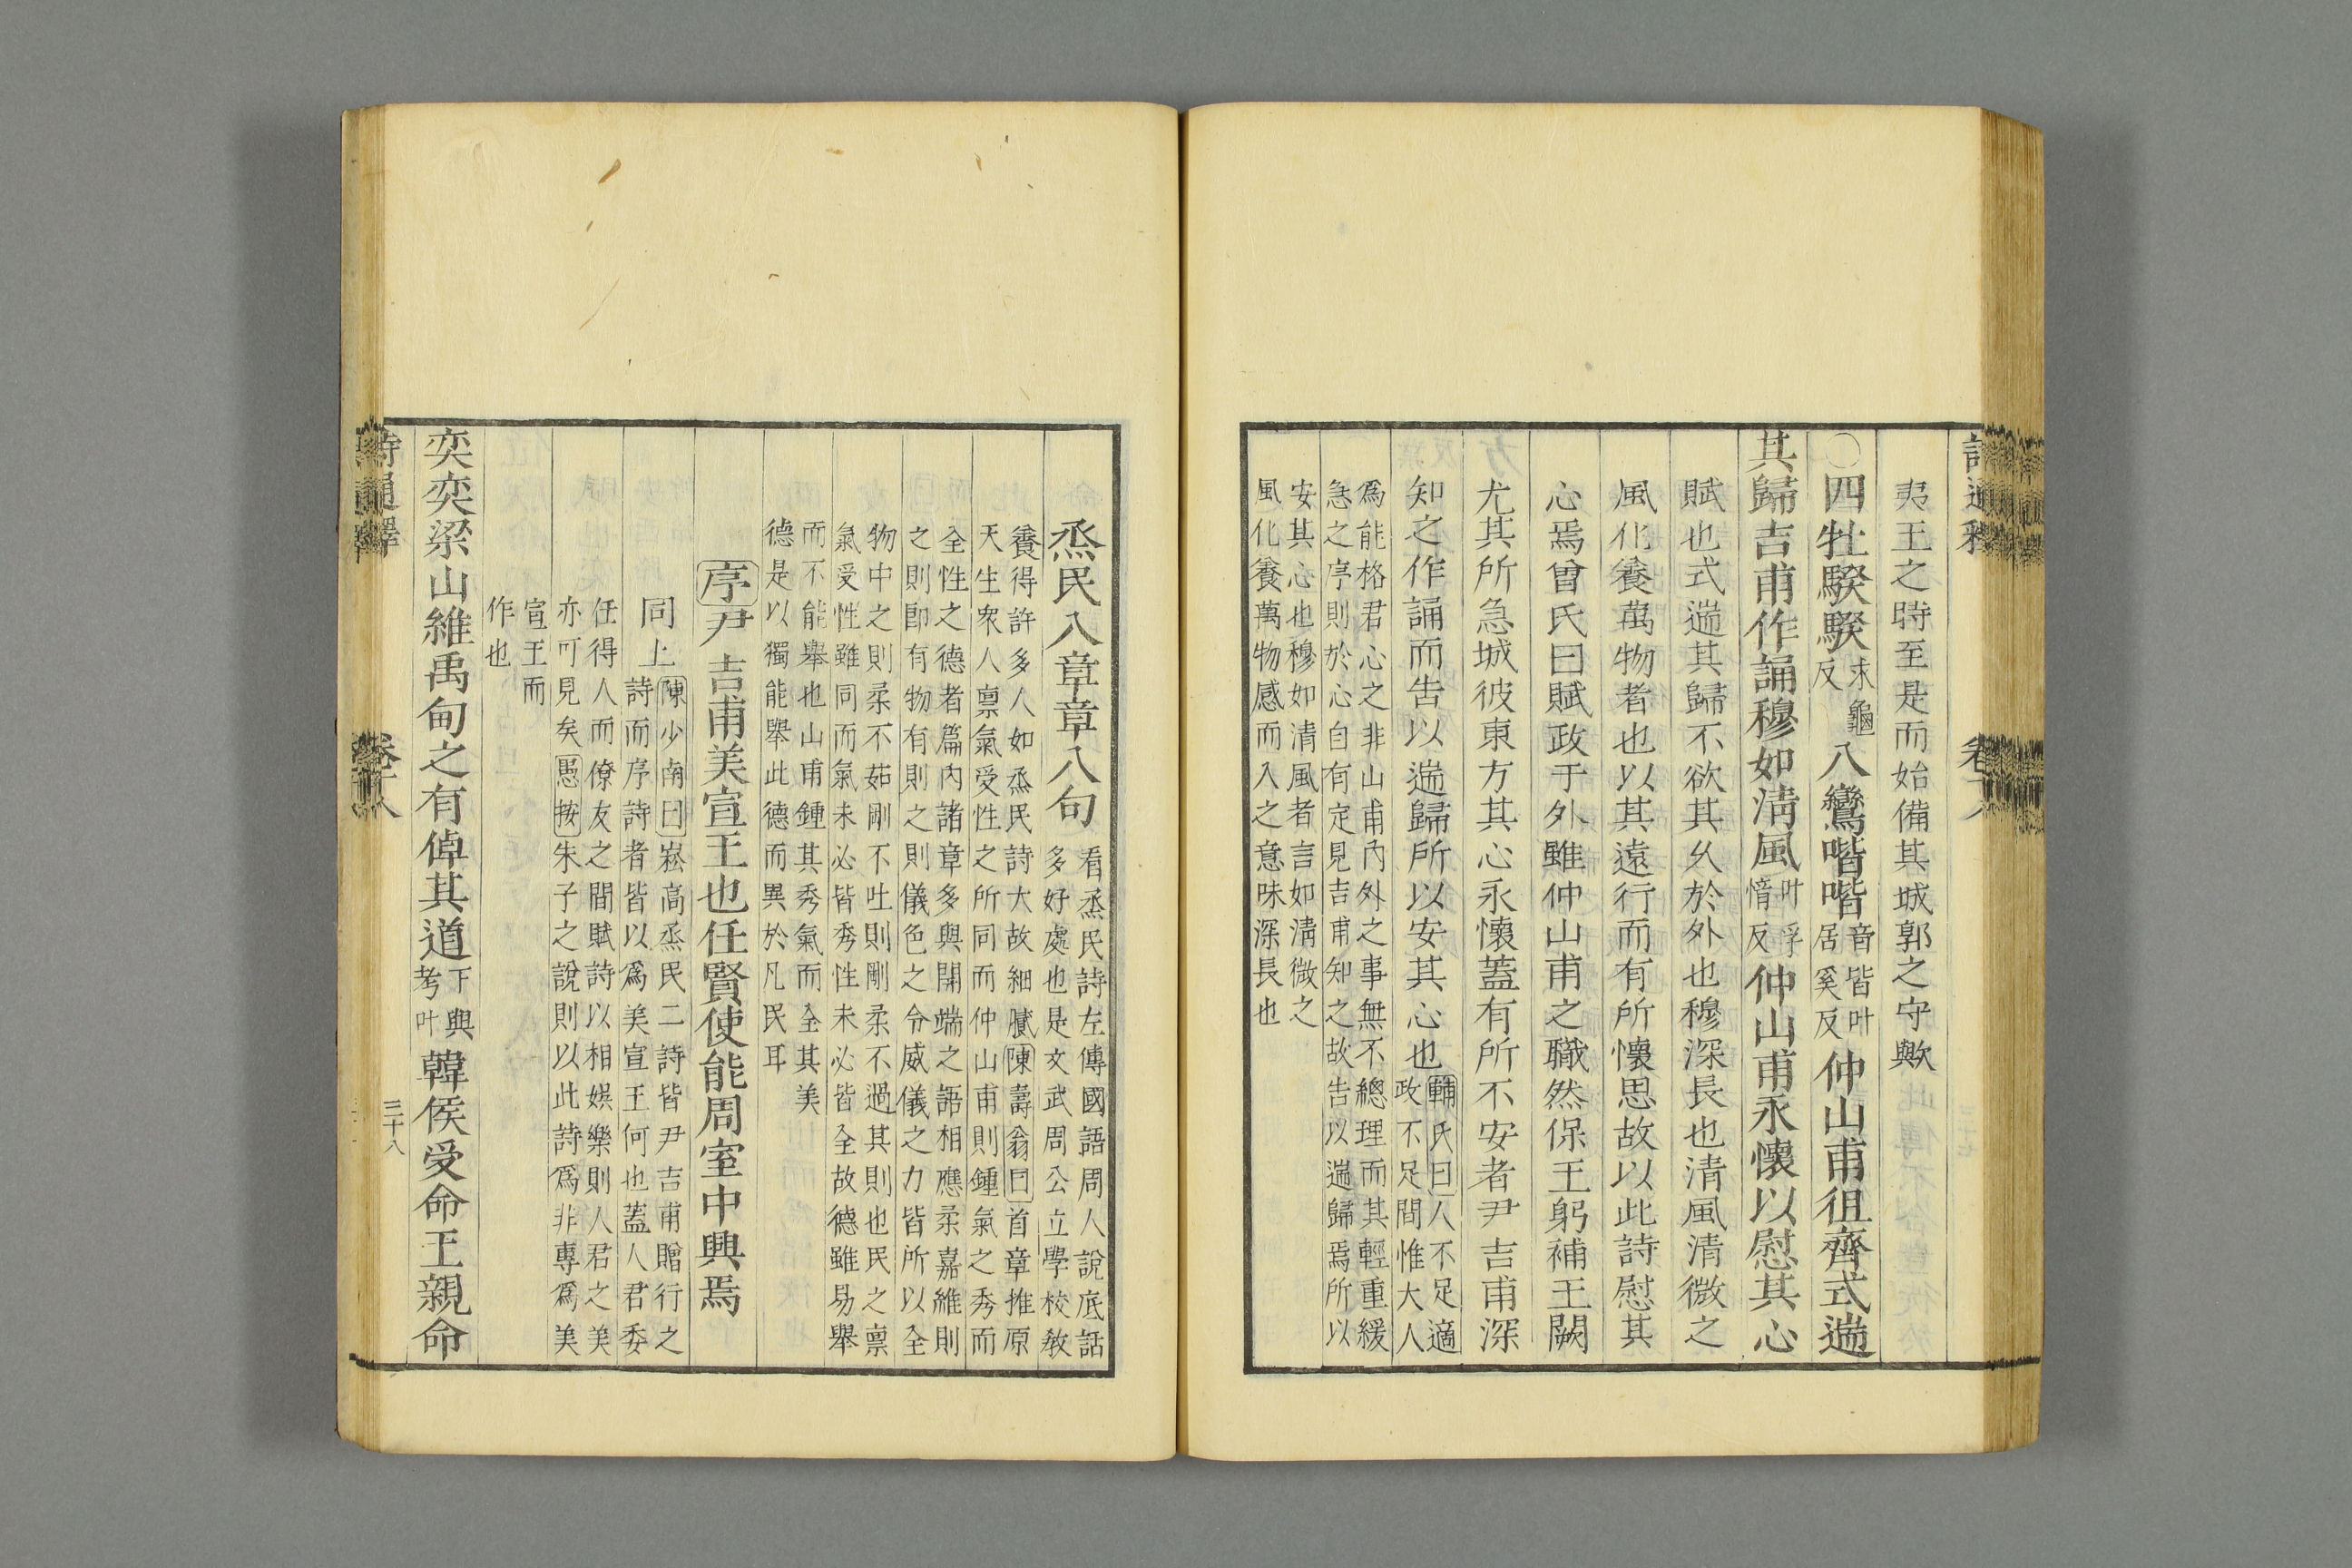 夷王之時至是而始備其城郭之守歟
〇四牡騤騤求龜反八鸞喈喈音皆叶居奚反仲山甫徂齊式遄
其歸吉甫作誦穆如淸風叶孚愔反仲山甫永懷以慰其心
賦也式遄其歸不欲其久於外也穆深長也清風清微之
風化養萬物者也以其遠行而有所懷思故以此詩慰其
心焉曾氏曰賦政于外雖仲山甫之職然保王躬補王闕
尤其所急城彼東方其心永懷蓋有所不安者尹吉甫深
知之作誦而告以遄歸所以安其心也輔氏曰人不足適
政不足間惟大人
爲能格君心之非山甫內外之事無不總理而其輕重緩
急之序則於心自有定見吉甫知之故告以遄歸焉所以
安其心也穆如清風者言如淸微之
風化養萬物感而入之意味深長也
烝民八章章八句看烝民詩左傳國語周人說底話
多好處也是文武周公立學校敎
養得許多人如烝民詩大故細膩陳壽翁曰首章推原
天生衆人禀氣受性之所同而仲山甫則鍾氣之秀而
全性之德者篇內諸章多與開端之語相應柔嘉維則
之則卽有物有則之則儀色之令威儀之力皆所以全
物中之則柔不茹剛不吐則剛柔不過其則也民之禀
氣受性雖同而氣未必皆秀性未必皆全故德雖易舉
而不能舉也山甫鍾其秀氣而全其美
德是以獨能舉此德而異於凡民耳
序尹吉甫美宣王也任賢使能周室中興焉
同上陳少南曰崧高烝民二詩皆尹吉甫贈行之
詩而序詩者皆以爲美宣王何也蓋人君委
任得人而僚友之間賦詩以相娛樂則人君之美
亦可見矣愚按朱子之說則以此詩爲非專爲美
宣王而
作也
奕奕梁山維禹甸之有倬其道下與考叶韓侯受命王親命
詩通釋
卷十八
三十八